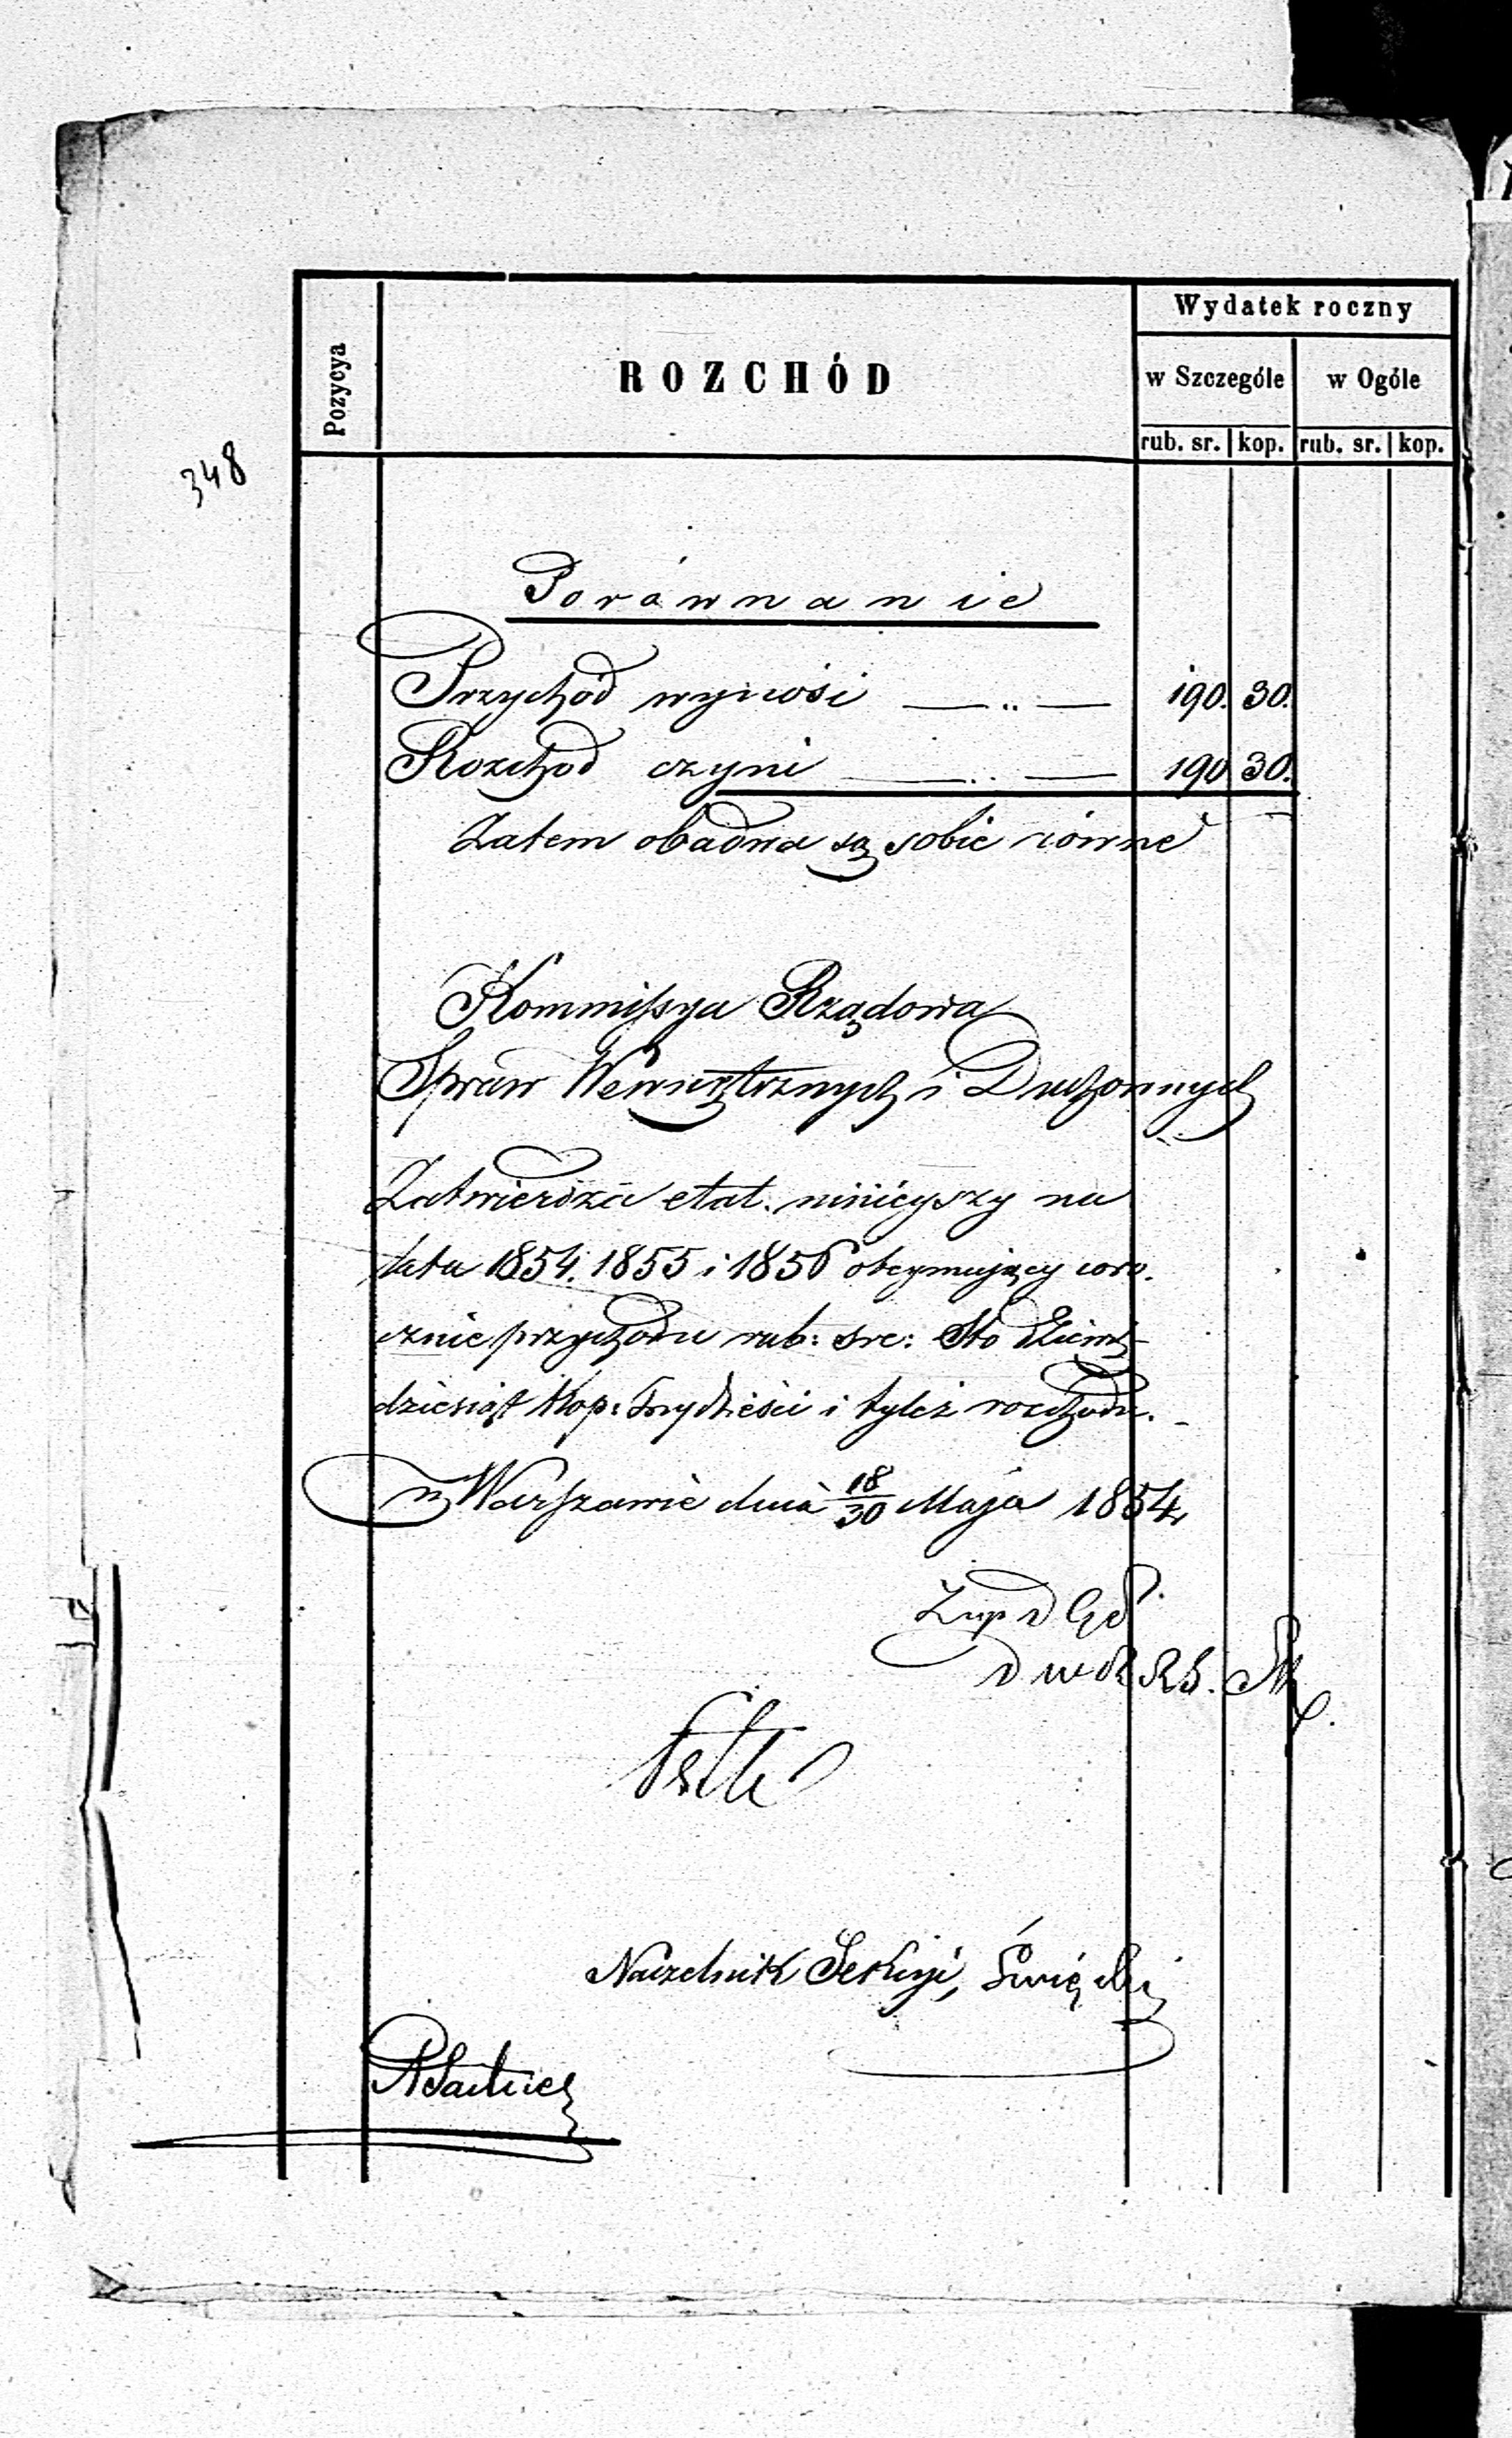 Wydatek roczny
Pozycya
ROZCHÓD
w Szczególe w Ogóle
rub. sr. kop. rub. sr. kop.
348
Porównanie
Przychód wynosi — „ — 190. 30.
Rozchód czyni — „ — 190 30.
Zatem obadwa są sobie równe
Kommissya Rządowa
Spraw Wewnętrznych i Duchownych
Zatwierdza etat niniejszy na
lata 1854. 1855 i 1856 obejmujący coro-
cznie przychodu rub: sre: Sto dziewię-
dziesiąt kop: trzydzieści i tyleż rozchodu.
w Warszawie dnia 18/30 Maja 1854
Naczelnik Sekcyi, Święcki